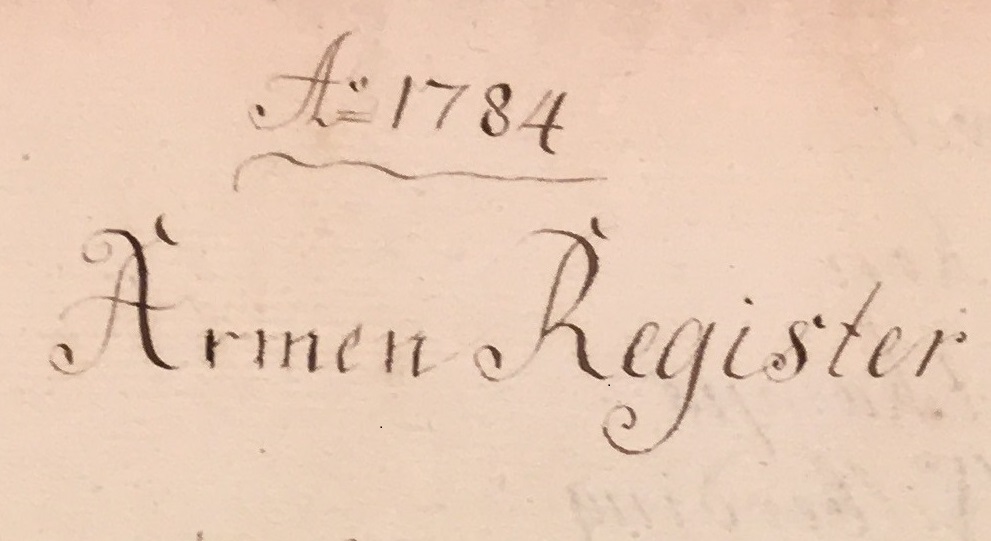 Aº 1784
Armen Register